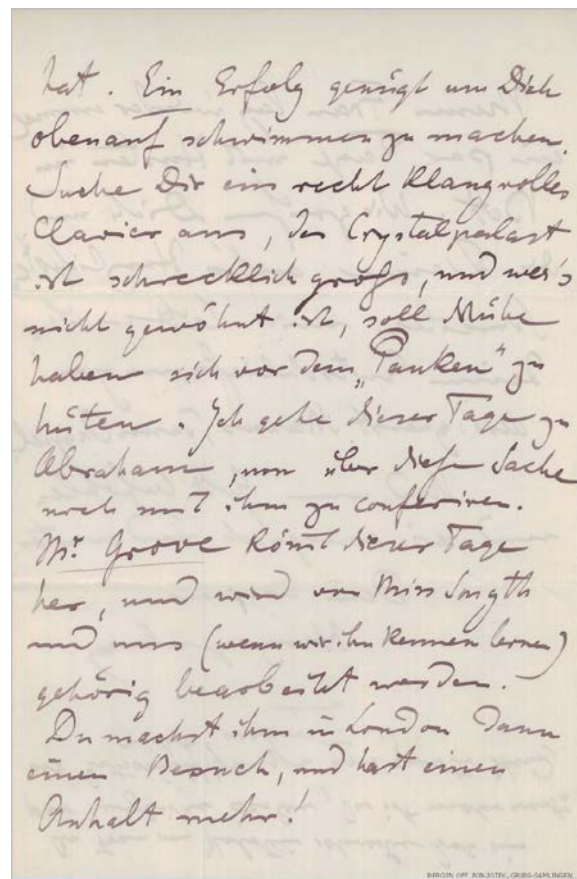 hat. Ein Erfolg genügt um Dich
obenauf schwimmen zu machen.
Suche Dir ein recht Klangvolles
Clavier aus, der Crystalpalast
ist schrecklich groß, und wer's
nicht gewöhnt ist, soll Mühe
haben sich vor dem „Pauken" zu
hüten. Ich gehe dieser Tage zu
Abraham, um über diese Sache
noch mit ihm zu conferiren.
Mr. Grove kömt dieser Tage
her, und wird von Miss Smyth
und uns (wenn wir ihn kennen lernen)
gehörig bearbeitet werden.
Du machst ihm in London dann
einen Besuch, und hast einen
Anhalt mehr!
BERGEN OFF. BIBLIOTEK, GRIEG-SAMLINGEN